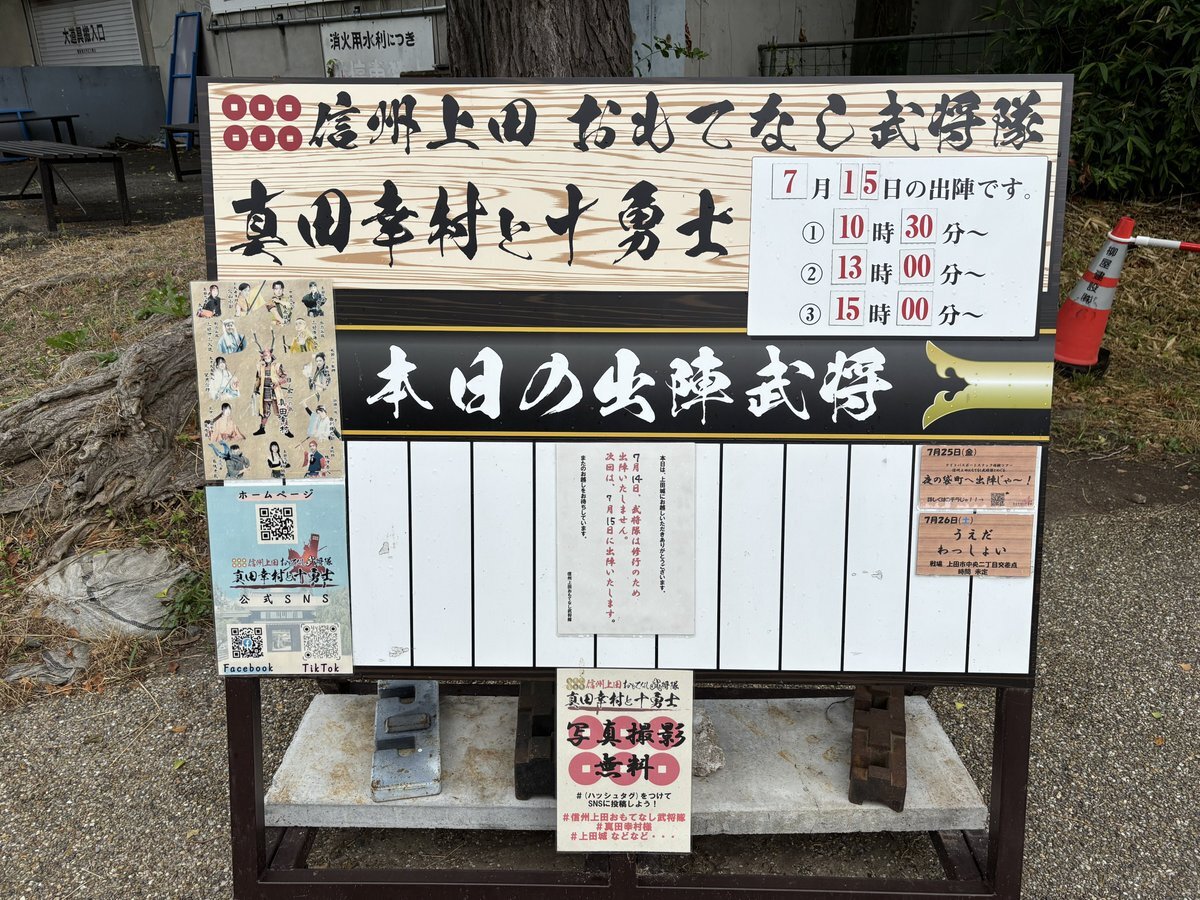 大道具搬入口
消火用水利につき
信州上田 おもてなし武将隊
真田幸村と十勇士
7月15日の出陣です。
① 10時30分～
② 13時00分～
③ 15時00分～
本日の出陣武将
本日は、上田城にお越しいただきありがとうございます。
7月14日、武将隊は修行のため
出陣いたしません。
次回は、7月15日に出陣いたします。
またのお越しをお待ちしています。
信州上田おもてなし武将隊
7月25日(金)
夜の袋町へ出陣じゃ～！
7月26日(土)
うえだ
わっしょい
戦場 上田市中央二丁目交差点
時間 未定
ホームページ
信州上田おもてなし武将隊
真田幸村と十勇士
公式SNS
Facebook
TikTok
信州上田おもてなし武将隊
真田幸村と十勇士
写真撮影
無料
#(ハッシュタグ)をつけて
SNSに投稿しよう！
#信州上田おもてなし武将隊
#真田幸村様
#上田城 などなど・・・
柳屋建設㈱